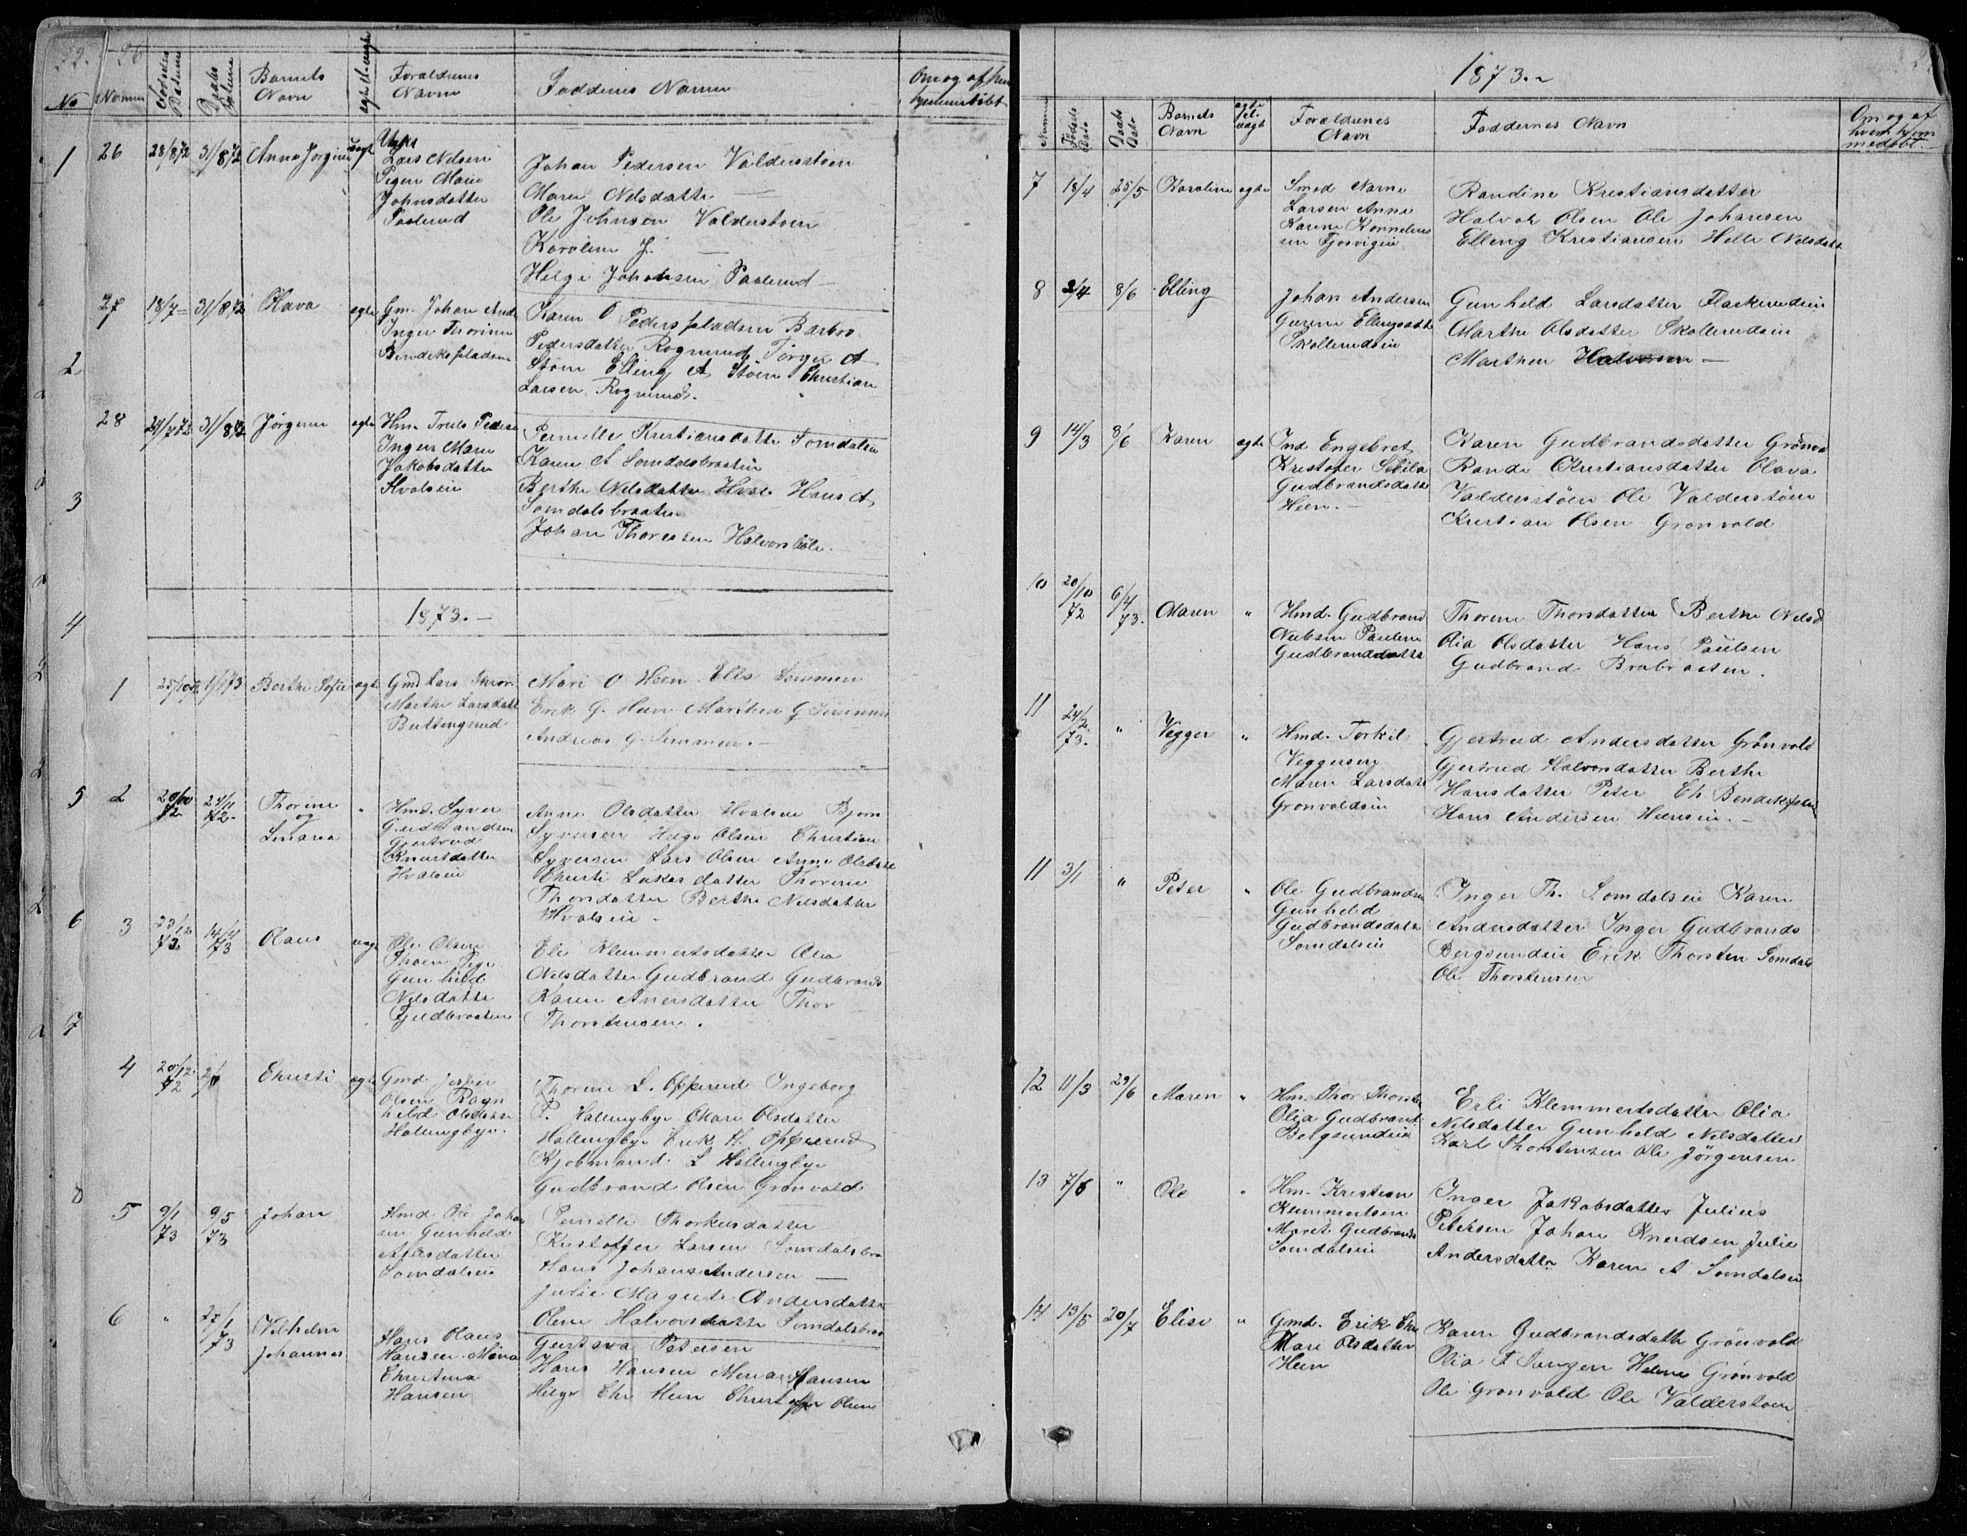 No Nomm Fødsels Datum Daabs Datum Barnets Navn ægte Uægte Foraldrenes Navn Faddernes Navne Om og af hvem hjemmedøbt
1
26 28/8 72 31/8 72 Anne Jørgine uægt
Lars Nilsen
Pigen Marie
Johnsdatter
Paalerud
Johan Pedersen Valdersstøen
Maren Nelsdatter —
Ole Johnsen Valderstoen
Karoline J. —
Helge Johansen Paalerud —
27 18/7 31/8 72 Olava ægte
Gm. Johan And
Inger Thorine
Bendikspladsen
Karen O Pederspladsen Barbro
Pedersdatter Rognerud Torger A
Støen Elling A Støen Christian
Larsen Rognerud.
2
28 24/7 72 31/8 72 Jørgine ægte
Hm. Truls Peders
Inger Marie
Jakobsdatter
Hvalseie
Pernille Kristiansdatter Somdalen
Karen A Somdalsbraaten
Berthe Nilsdatter Hval Hans A
Somdalsbraaten
Johan Thoresen Halvorsbøle.
3
1873. —
4
1 25/10 72 1/1 73 Berthe Sofie ægte
Gmd Lars Thron
Marthe Larsdatt
Buttengrud
Mari O Heen Elis Semmen
Erik G. Heen Marthea G Semmen
Andreas G. Semmen. —
5
2 20/10 72 24/11 72 Thorine
og
Linaria "
Hmd. Syver
Gudbrandsen
Gjertrud
Knutsdatter
Hvalseie
Anne Olsdatter Hvalseie Bjørn
Syversen Helge Olsen Christian
Syversen Lars Olsen Anne Olsdatt
Christi Lukasdatter Thorine
Thorsdatter Berthe Nilsdatter
Hvalseie —
6
3 23/12 72 14/4 73 Olaus uægt
Ole Olsen
Thoen Pige
Gunhild
Nilsdatte
Gudbraaten
Eli Klemmertsdatter Olia
Nilsdatter Gudbrand Gudbrands
Karen Anersdatter Thor
Thorstensen.
7
4 20/12 72 Christi ægte
Gmd Jesper
Olsen Ragn
hild Olsdatter
Hallingbye.
Thorine L. Opperud Ingeborg
P. Hallingbye Mari Olsdatter
Hallingbye Erik H. Opperud
Kjobmand L Hallingbye
Gudbrand Olsen Grønvold
8
5 9/1 73 9/5 73 Johan
Hmd Ole Johan
sen Gunhild
Andersdatter
Somdalseie
Pernille Thorkelsdatter
Kristoffer Larsen Somdalsbra
Hans Johans Andersen —
Julie Magrete Andersdatter
Olene Halvorsdatte Somdalsbraa
6 " 27/1 73 Vilhelm
Johannes
Hans Olaus
Hansen Mina
Christina
Hansen
Gustava Petersen
Hans Hansen Menan Hansen
Helge Chr Heen Christoffer Olsen
1873. ~
Nummer Fødsels Dato Daabs Dato Barnets Navn ægte el. uægt Foraldrenes Navn Faddernes Navn Om og af hvem hjem medøbt.
7 18/4 25/5 Karoline ægte
Smed Narve
Larsen Anne
Karine Kornelius
sen Fjosvigen
Randine Kristiansdatter
Halvor Olsen Ole Johansen
Elling Kristiansen Helle Nilsdatt
8 2/4 8/6 Elling
Johan Andersen
Gurine Ellingsdatt
Skollerudeie
Gunhild Larsdatter Flaskerudeie
Marthe Olsdatter Skollerudeie
Marthea Halvorsen —
9 14/3 8/6 Karen ægte
Ind. Engebret
Kristofer Sibila
Gudbrandsdatte
Heen. —
Karen Gudbrandsdatter Grønvo
Randi Christiansdatter Olava
Valdersstøen Ole Valdersstøen
Kristian Olsen Grønvold
10 20/10 72 6/4 73. Maren "
Hmd. Gudbrand
Nielsen Pauline
Gudbrandsdatte
Thorine Thorsdatter Berthe Nilsd
Olia Olsdatter Hans Paulsen
Gudbrand Brabraaten.
11 24/2 73. " Vegger "
Hmd. Torkil
Veggersen
Maren Larsdatt
Grønvoldeie
Gjertrud Andersdatter Grønvold
Gjertrud Halvorsdatter Berthe
Hansdatter Peter Eh Bendikspla
Hans Andersen Heenseie. —
11 3/1 " Peter "
Ole Gudbrandsen
Gunhild
Gudbrandsdatte
Somdalseie
Inger Th. Somdalseie Karen
Andersdatter Inger Gudbrands
Bergsundeie Erik Thorsten Somdals
Ole Thorstensen
12 11/3 29/6 Maren "
Hm. Thor Thorste
Olia Gudbrand
Bergsundeie
Erli Klemmertsdatter Olia
Nilsdatter Gunhild Nilsdatter
Karl Thorstensen Ole Jørgensen
13 7/6 " Ole "
Hm. Kristian
Klemmertsen
Maret Gudbrands
Somdalseie
Inger Jakobsdatter Julius
Petersen Johan Knudsen Julie
Andersdatte Karen A Somdalseie
14 13/5 20/7 Elise "
Gmd. Erik Chr
Mari Olsdatter
Heen
Karen Gudbrandsdatte Grønvold
Olia T Tangen Helene Grønvold
Ole Grønvold Ole Valderstoen